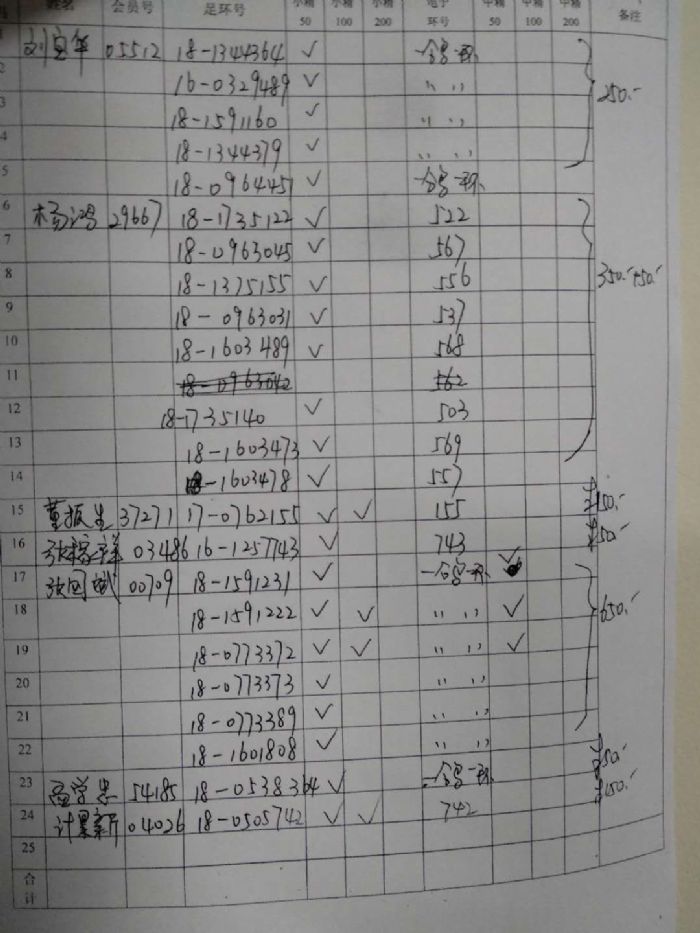 姓名 会员号 足环号 小精 50 小精 100 小精 200 电子环号 中精 50 中精 100 中精 200 备注
05512 18-1344364 ✓ 合各一环
2 16-0329489 ✓ 〃 〃 250.-
3 18-1591160 ✓ 〃 〃
4 18-1344379 ✓ 〃 〃
5 18-0964451 ✓ 合各一环
6 杨鸿 29667 18-1735122 ✓ 522
7 18-0963045 ✓ 567
8 18-1375155 ✓ 556 350.-+50.-
9 18-0963031 ✓ 537
10 18-1603489 ✓ 568
11 18-0963042 562
12 18-1735140 ✓ 503
13 18-1603473 ✓ 569
14 18-1603478 ✓ 557
15 董振生 37271 17-0762155 ✓ ✓ 155 150.-
16 03486 16-1257743 ✓ 743 50.-
17 张国斌 00709 18-1591231 ✓ 一合各一环 ✓
18 18-1591222 ✓ ✓ 〃 〃 ✓ 650.-
19 18-0773372 ✓ ✓ 〃 〃 ✓
20 18-0773373 ✓ 〃 〃
21 18-0773389 ✓ 〃 〃
22 18-1601808 ✓ 〃 〃
23 高学忠 54185 18-0538364 ✓ 一合各一环 50.-
24 计果新 04026 18-0505742 ✓ ✓ 742 150.-
25
合计